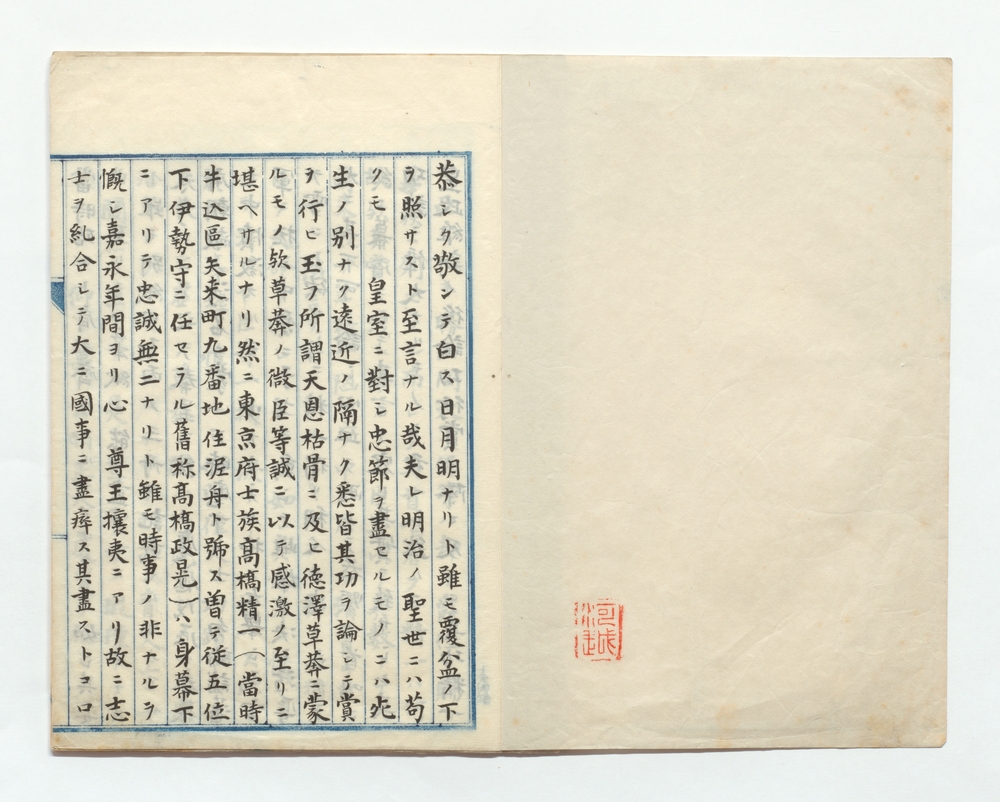 恭シク敬ンテ白ス日月明ナリト雖モ覆盆ノ下
ヲ照サスト至言ナル哉夫レ明治ノ聖世ニハ苟
クモ　皇室ニ對シ忠節ヲ盡セルモノニハ死
生ノ別ナク遠近ノ隔ナク悉皆其功ヲ論シテ賞
ヲ行ヒ玉フ所謂天恩枯骨ニ及ヒ徳澤草莽ニ蒙
ルモノ欤草莽ノ微臣等誠ニ以テ感激ノ至リニ
堪ヘサルナリ然ニ東京府士族高橋精一（當時
牛込區矢来町九番地住泥舟ト號ス曽テ従五位
下伊勢守ニ任セラル舊称高橋政晃）ハ身幕下
ニアリテ忠誠無二ナリト雖モ時事ノ非ナルヲ
慨シ嘉永年間ヨリ心　尊王攘夷ニアリ故ニ志
士ヲ糺合シテ大ニ國事ニ盡瘁ス其盡ストコロ